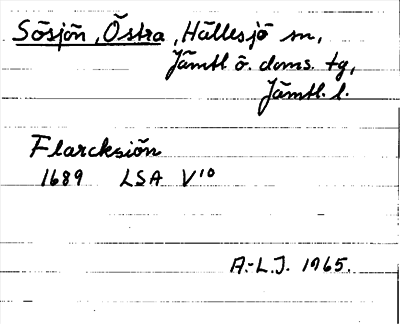 Sösjön, Östra, Hällesjö sn,
Jämtl ö. doms. tg,
Jämtl. l.
Flarcksiön
1689 LSA V¹⁰
A.-L.J. 1965.